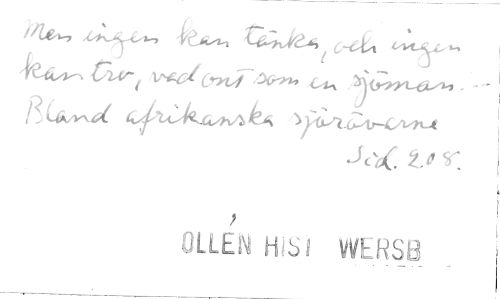 Men ingen kan tänka, och ingen
kan tro, vad ont som en sjöman.
Bland afrikanska sjörövarne
Sid. 208.
OLLÉN HIST WERSB